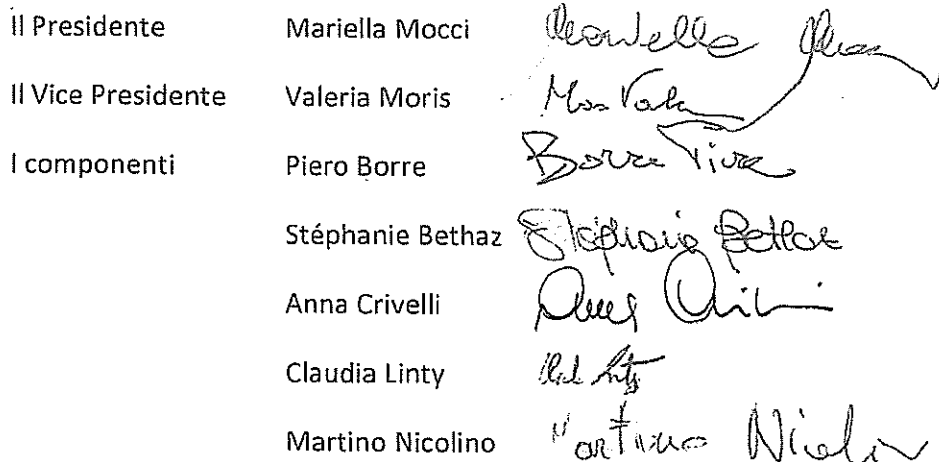 Il Presidente Mariella Mocci Mariella
Il Vice Presidente Valeria Moris
I componenti Piero Borre Borre Piero
Stéphanie Bethaz Stéphanie Bethaz
Anna Crivelli Anna
Claudia Linty
Martino Nicolino Martino Nicolin